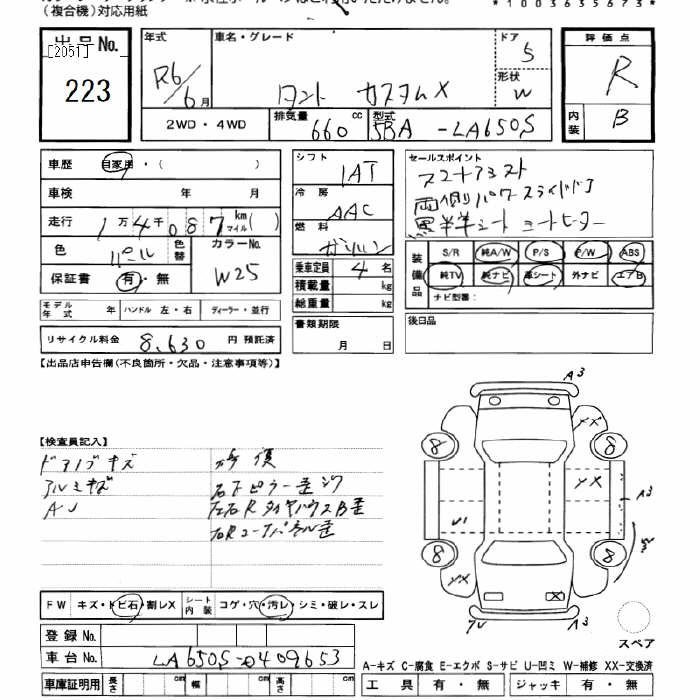 (複合機)対応用紙
*1003635673*
出品No.
[2051]
223
年式
R6/6月
車名・グレード
タント カスタムX
ドア
5
形状
W
評価点
R
内装
B
2WD・4WD
排気量
660
cc
型式
5BA-LA650S
車歴
自家用・( )
車検 年 月
走行
1万4千087
km
マイル
( )
色
パール
色替
カラーNo.
W25
保証書
有・無
モデル年式 年
ハンドル 左・右
ディーラー・並行
リサイクル料金 8,630円 預託済
シフト
1AT
冷房
AAC
燃料
ガソリン
乗車定員 4名
積載量 kg
総重量 kg
書類期限
月 日
セールスポイント
スマートアシスト
両側パワースライドドア
黒半半シート シートヒーター
装備品
S/R 純A/W P/S P/W ABS
純TV 純ナビ 革シート 外ナビ エアB
ナビ型番:
後日品
【出品店申告欄(不良箇所・欠品・注意事項等)】
【検査員記入】
ドアノブキズ
アルミキズ
AJ
右下ピラー歪ジワ
左右RタイヤハウスB歪
右Rコーナーパネル歪
A3
XX
8
8
XX
A3
U1
8
8
XX
A3
FW キズ・トビ石・割レX
シート内装 コゲ・穴・汚レ・シミ・破レ・スレ
登録No.
車台No. LA650S-0409653
車庫証明用 長さ cm 幅 cm 高さ cm
スペア
A-キズ C-腐食 E-エクボ S-サビ U-凹ミ W-補修 XX-交換済
工具 有・無 ジャッキ 有・無